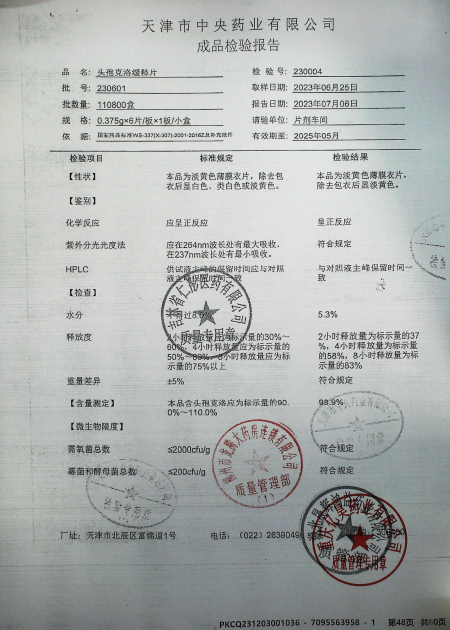 天津市中央药业有限公司
成品检验报告
品 名：头孢克洛缓释片 检 验 号：230004
批 号：230601 取样日期：2023年06月25日
批数量：110800盒 报告日期：2023年07月06日
规 格：0.375g×6片/板×1板/小盒 请验单位：片剂车间
依 据：国家药品标准WS-337(X-307)-2001-2016Z及补充批件 有效期至：2025年05月
检验项目 标准规定 检验结果
【性状】 本品为淡黄色薄膜衣片，除去包 本品为淡黄色薄膜衣片，
衣后显白色、类白色或淡黄色。 除去包衣后显淡黄色。
【鉴别】
化学反应 应呈正反应 呈正反应
紫外分光光度法 应在264nm波长处有最大吸收， 符合规定
在237nm波长处有最小吸收。
HPLC 供试液主峰的保留时间应与对照 与对照液主峰保留时间一
液主峰保留时间一致 致
【检查】
水分 5.3%
释放度 2小时释放量应为标示量的30%～ 2小时释放量为标示量的37
60%，4小时释放量应为标示量的 %，4小时释放量为标示量
50%～80%，8小时释放量应为标 的58%，8小时释放量为标
示量的75%以上 示量的83%
重量差异 ±5% 符合规定
【含量测定】 本品含头孢克洛应为标示量的90. 98.9%
0%～110.0%
【微生物限度】
需氧菌总数 ≤2000cfu/g 符合规定
霉菌和酵母菌总数 ≤200cfu/g 符合规定
厂址：天津市北辰区富锦道1号 电话：(022)
吉林省仁 医药有限公司
质量专用章
柳州市龙 大药房连锁有限公司
质量管理部
(1)
质量管理专用章
PKCQ231203001036 - 7095563958 - 1 第48页 共60页